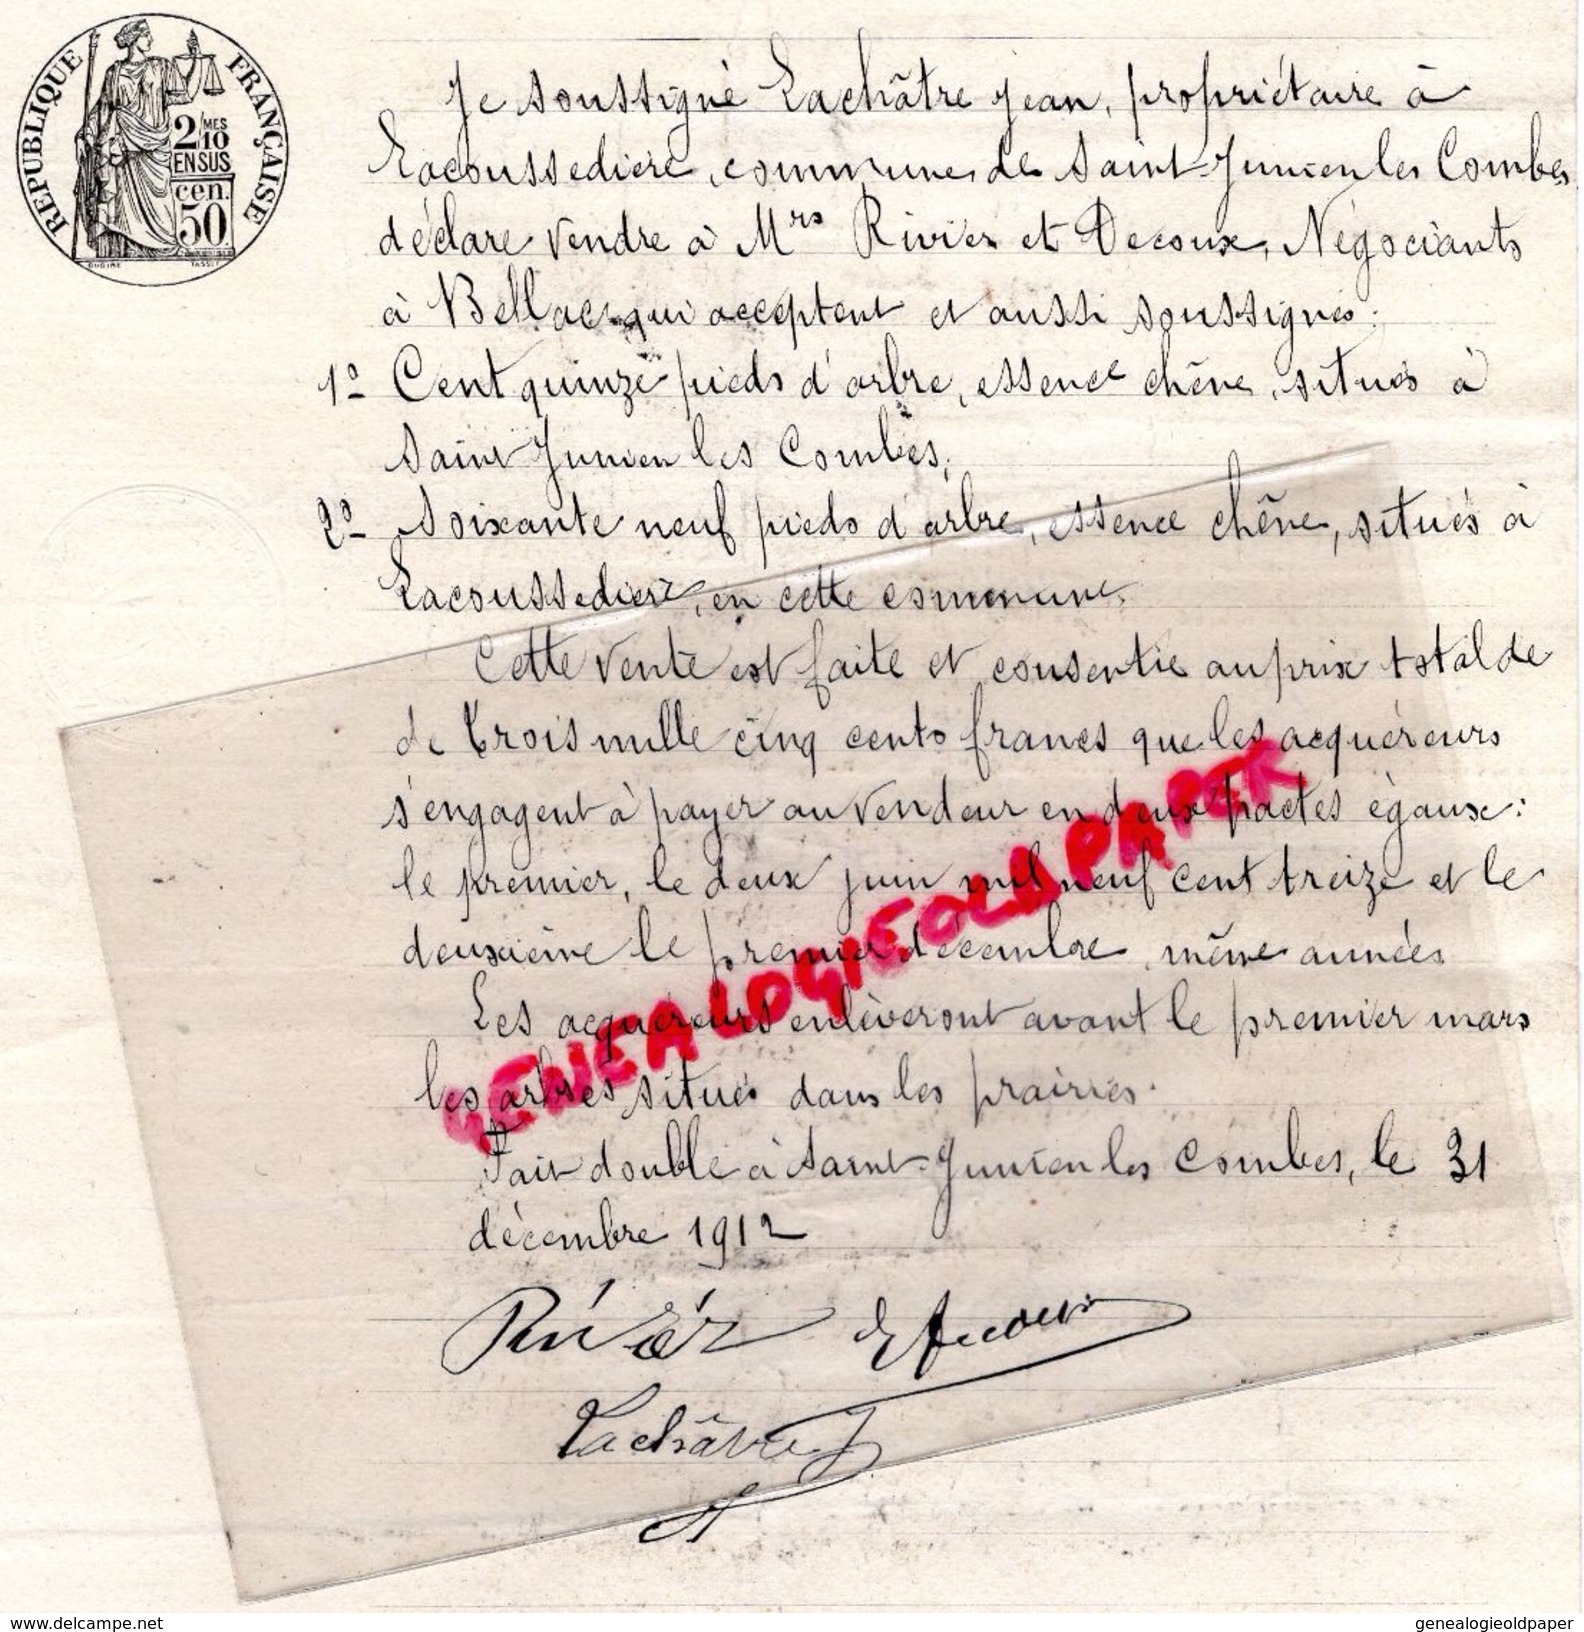 RÉPUBLIQUE FRANÇAISE
2/10 MES
EN SUS
cen.
50
OUDINÉ TASSET
Je soussigné Lachâtre Jean, propriétaire à
Lacoussedière, commune de Saint-Junien les Combes
déclare vendre à Mrs Rivier et Decoux, Négociants
à Bellac qui acceptent et aussi soussignés :
1º Cent quinze pieds d'arbre, essence chêne, situés à
Saint Junien les Combes,
2º Soixante neuf pieds d'arbre, essence chêne, situés à
Lacoussedière, en cette commune,
Cette vente est faite et consentie au prix total de
de trois mille cinq cents francs que les acquéreurs
s'engagent à payer au vendeur en deux pactes égaux :
le premier, le deux juin mil neuf cent treize et le
deuxième le premier décembre, même année.
Les acquéreurs enlèveront avant le premier mars
les arbres situés dans les prairies.
Fait double à Saint-Junien les Combes, le 31
décembre 1912
Rivier Decoux
Lachâtre J
GENEALOGIEOLDPAPER
www.delcampe.net
genealogieoldpaper